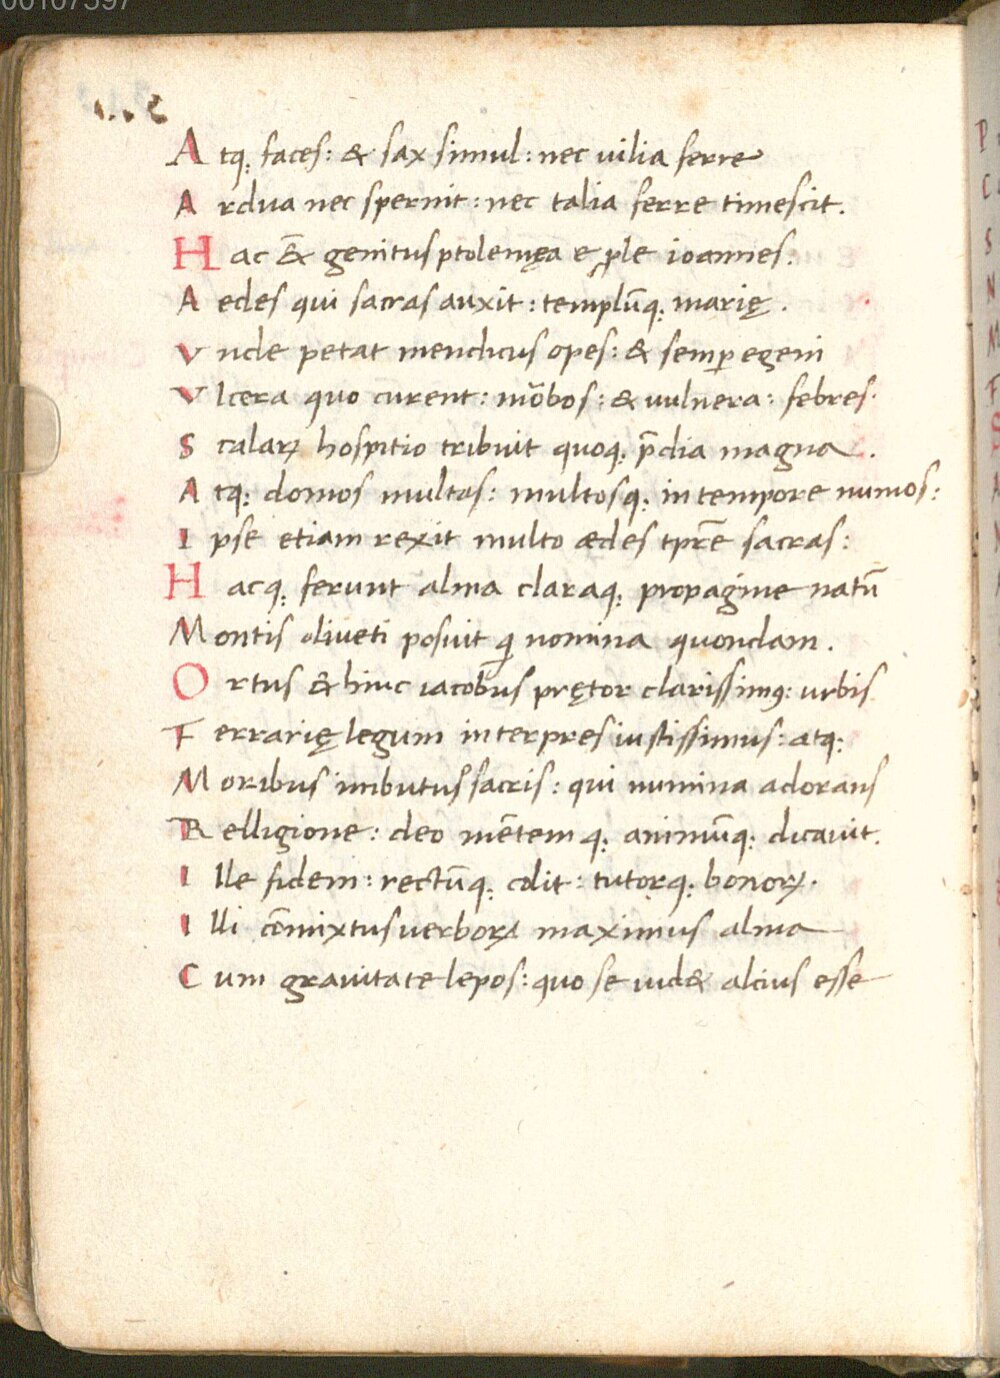 Atq; faces: & sax simul: nec uilia ferre
Ardua nec spernit: nec talia ferre timescit.
Hac & genitus ptolemęa e ꝓle ioannes.
Aedes qui sacras auxit: templūq; marię.
Vnde petat mendicus opes: & semꝑ egeni
Vlcera quo curent: mōbos: & uulnera: febres.
Scalaꝝ hospitio tribuit quoq; p̄dia magna.
Atq; domos multas: multosq; in tempore numos:
Ipse etiam rexit multo ædes tp̄re sacras:
Hacq; ferunt alma claraq; propagine natū
Montis oliueti posuit qi nomina quondam.
Ortus & hinc iacobus prętor clarissimꝯ: urbis
Ferrarię legum interpres iustissimus: atq;
Moribus imbutus sacris: qui numina adorans
Relligione: deo mētem q; animūq; dicauit.
Ille fidem: rectūq; colit: tutorq; bonoꝝ.
Illi cōmixtus uerboꝝ maximus alma
Cum grauitate lepos: quo se uid& alcius esse